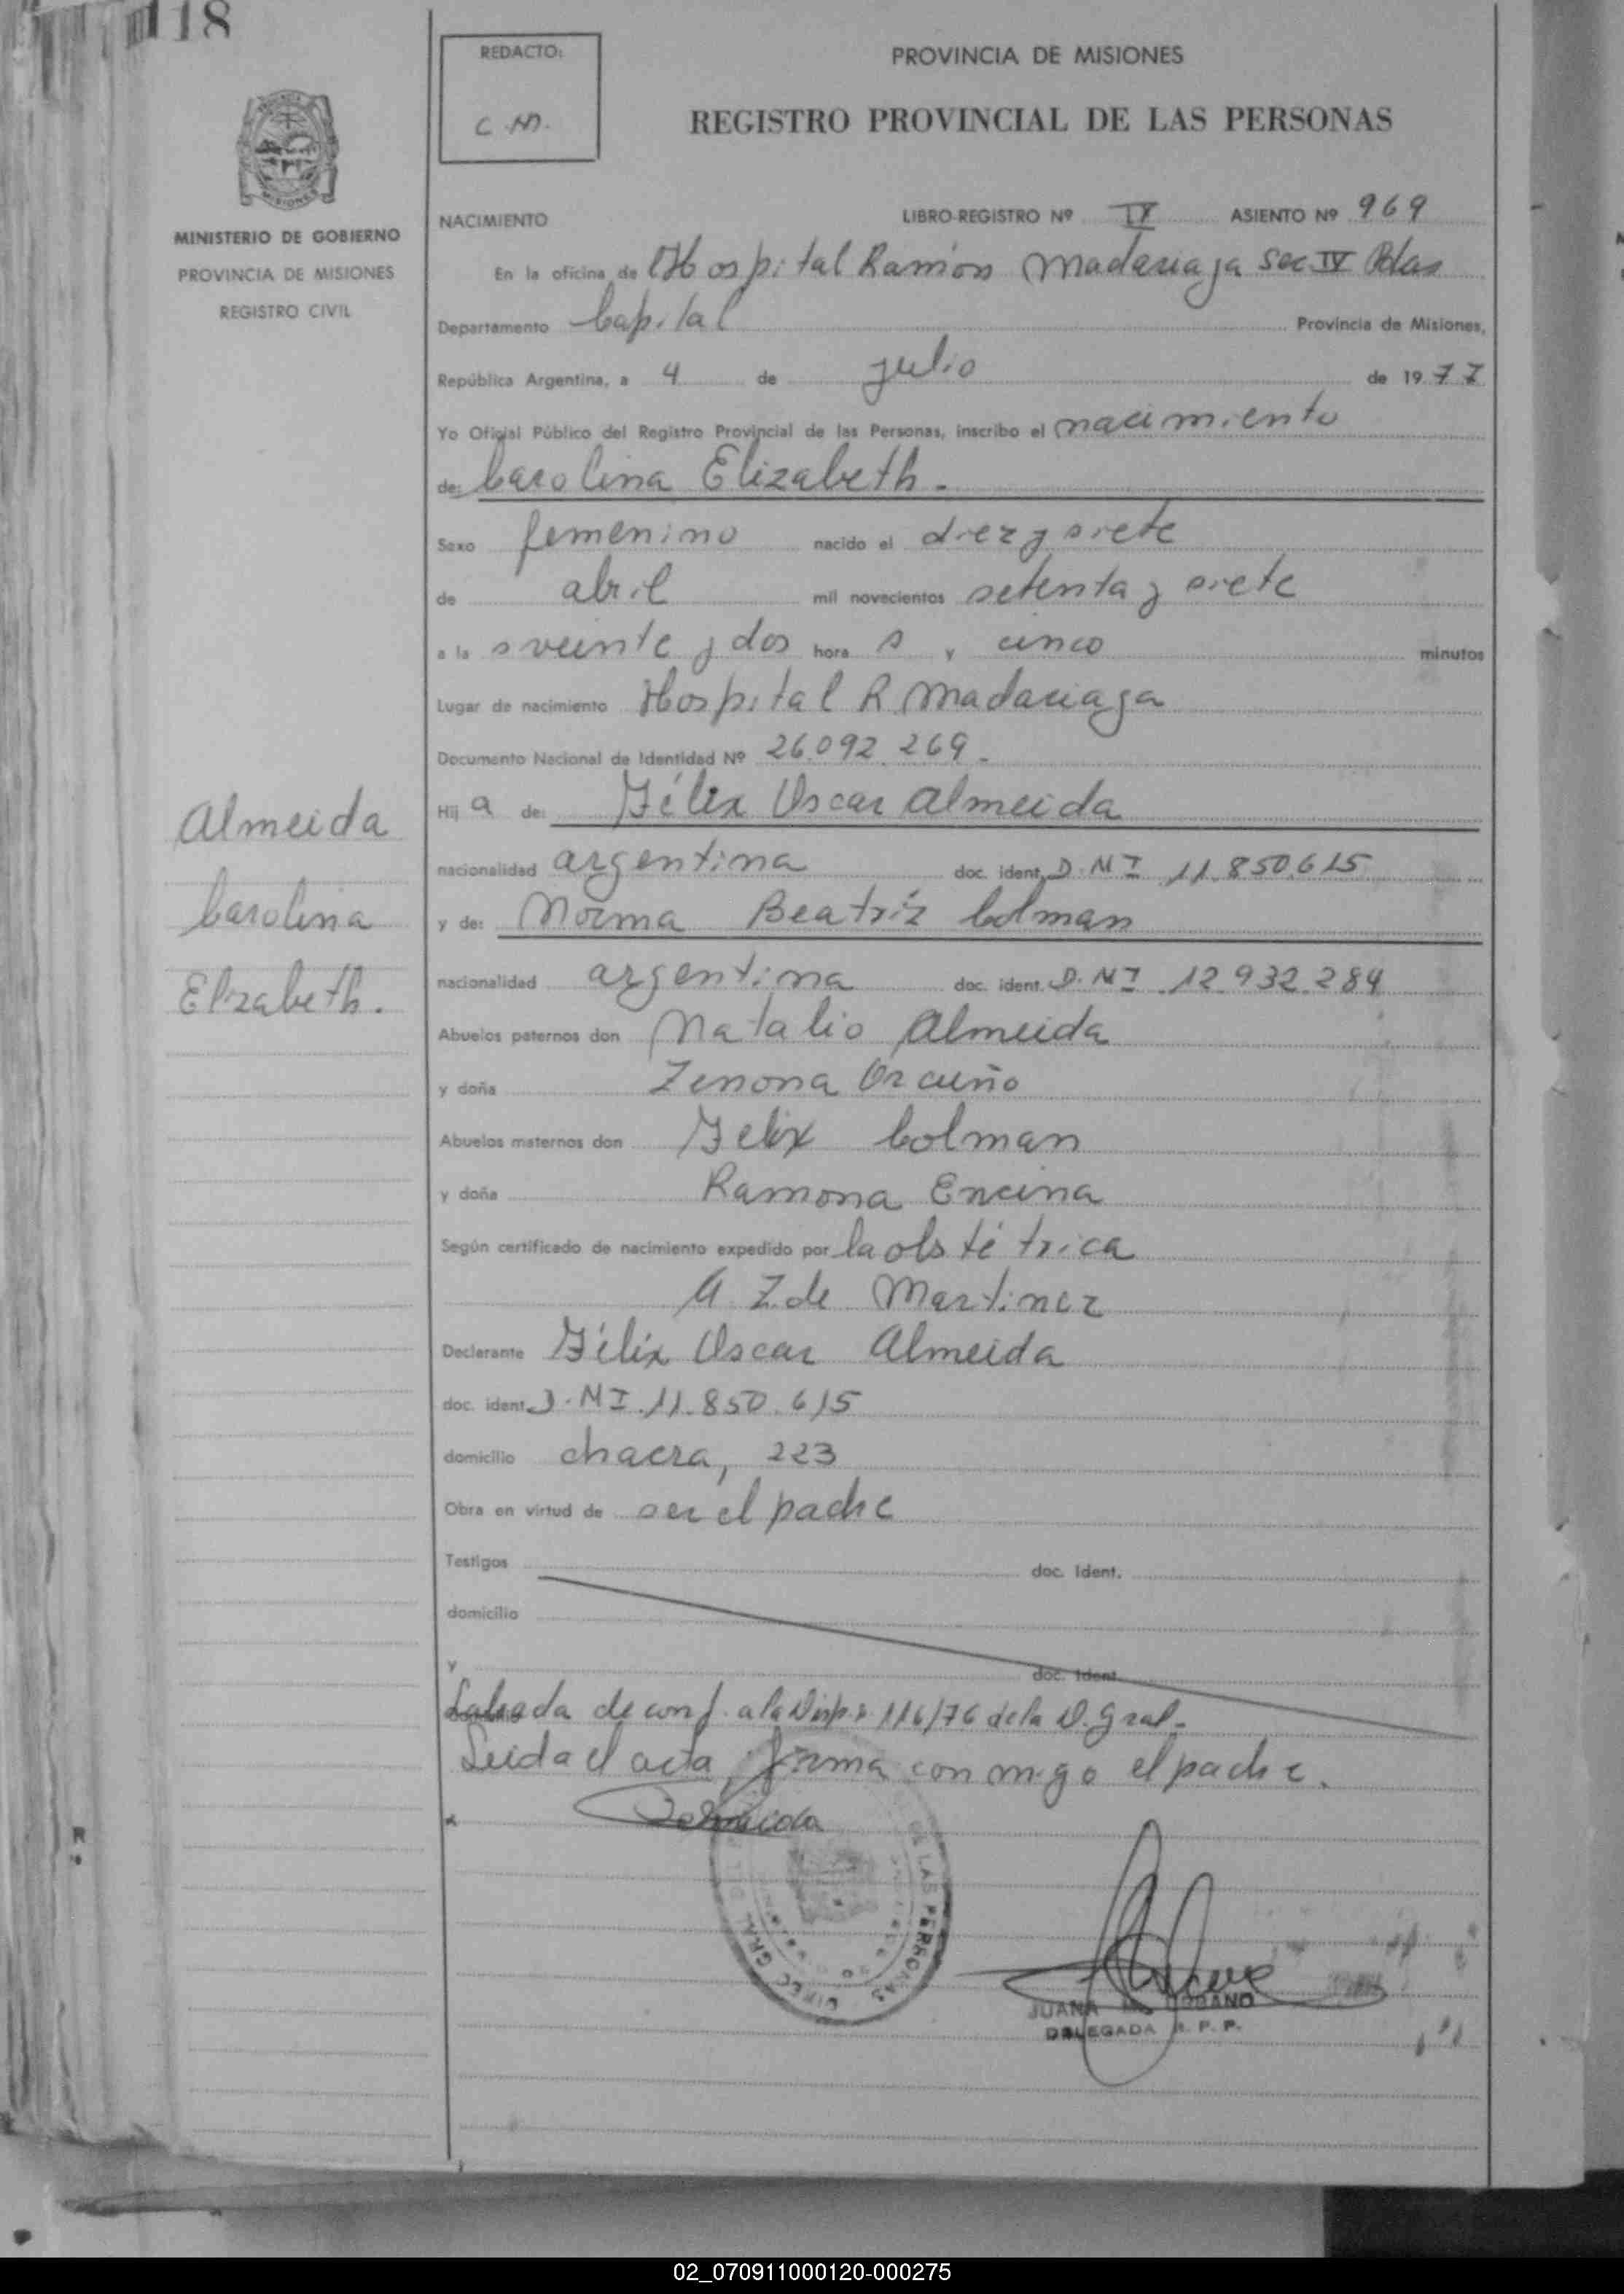 118
REDACTO:
C.M.
PROVINCIA DE MISIONES
REGISTRO PROVINCIAL DE LAS PERSONAS
MINISTERIO DE GOBIERNO
PROVINCIA DE MISIONES
REGISTRO CIVIL
NACIMIENTO LIBRO-REGISTRO Nº IV ASIENTO Nº 969
En la oficina de Hospital Ramón Madariaga Sec IV Pdas
Departamento Capital Provincia de Misiones,
República Argentina, a 4 de julio de 1977
Yo Oficial Público del Registro Provincial de las Personas, inscribo el nacimiento
de: Carolina Elizabeth.
Sexo femenino nacido el diez y siete
de abril mil novecientos setenta y siete
a la s veinte y dos hora s y cinco minutos
Lugar de nacimiento Hospital R Madariaga
Documento Nacional de Identidad Nº 26.092.269.
Hij a de: Félix Oscar Almeida
nacionalidad argentina doc. ident. D.N I 11.850.615
y de: Norma Beatríz Colman
nacionalidad argentina doc. ident. D.N I 12.932.284
Abuelos paternos don Natalio Almeida
y doña Zenona Orcuño
Abuelos maternos don Felix Colman
y doña Ramona Encina
Según certificado de nacimiento expedido por la obstétrica
A. Z. de Martinez
Declarante Félix Oscar Almeida
doc. ident. D.N I. 11.850.615
domicilio chacra, 223
Obra en virtud de ser el padre
Testigos doc. Ident.
domicilio
y doc. Ident.
Labrada de conf. a la Disp. 116/76 de la D. Gral.
Leida el acta, firma conmigo el padre.
Almeida
Almeida
Carolina
Elizabeth.
DIREC GRAL DE LAS PERSONAS
JUANA URBANO
DELEGADA R. P. P.
02_070911000120-000275